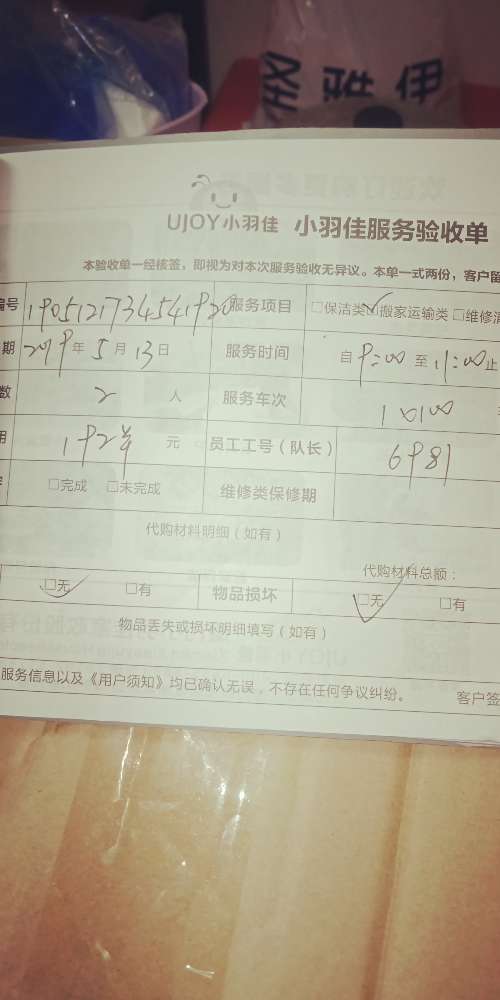 格雅伊
UJOY小羽佳 小羽佳服务验收单
本验收单一经核签，即视为对本次服务验收无异议。本单一式两份，客户留
编号 服务项目 □保洁类 ☑搬家运输类 □维修清
期 2019年5月13日 服务时间 自9:00至11:00止
数 2人 服务车次
用 元 员工工号（队长） 6981
□完成 □未完成 维修类保修期
代购材料明细（如有）
代购材料总额：
☑无 □有 物品损坏 ☑无 □有
物品丢失或损坏明细填写（如有）
服务信息以及《用户须知》均已确认无误，不存在任何争议纠纷。 客户签